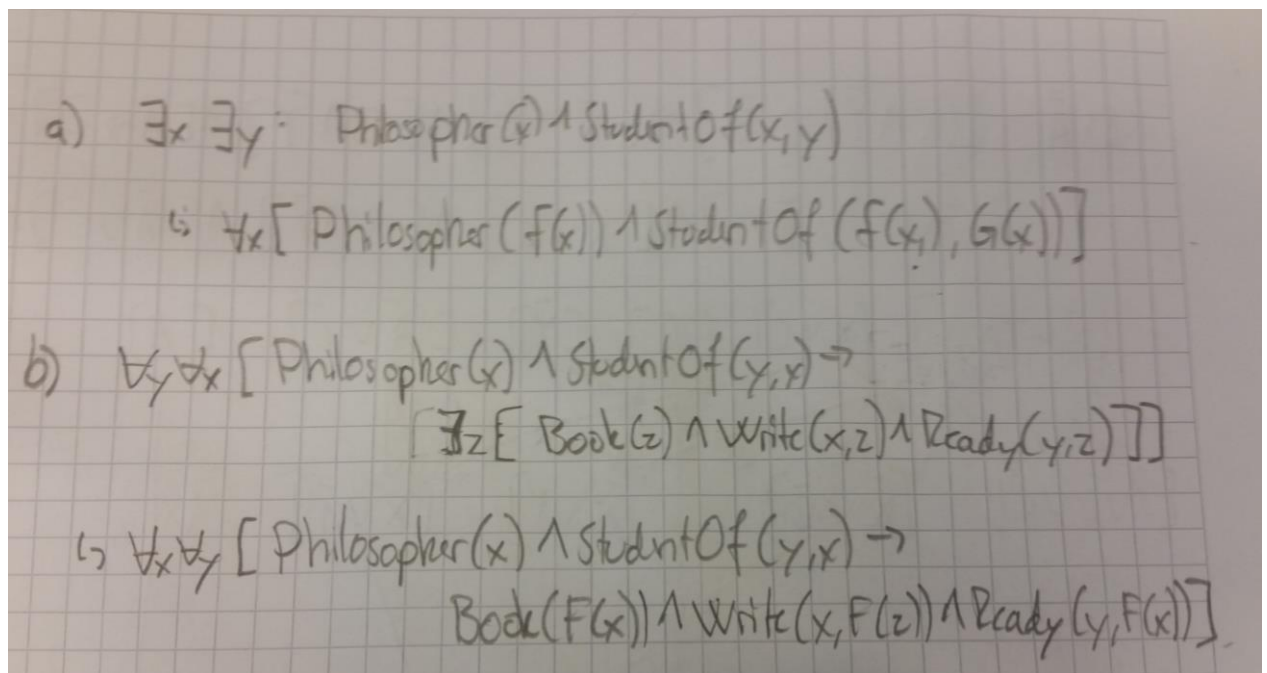 a) ∃x ∃y: Philosopher(x) ∧ StudentOf(x, y)
↳ ∀x [ Philosopher (F(x)) ∧ StudentOf (F(x), G(x))]
b) ∀y ∀x [Philosopher(x) ∧ StudntOf(y,x) →
∃z[ Book(z) ∧ Write(x,z) ∧ Ready(y,z)]]
↳ ∀x ∀y [Philosopher(x) ∧ StudntOf(y,x) →
Book(F(x)) ∧ Write(x,F(z)) ∧ Ready(y,F(x))]